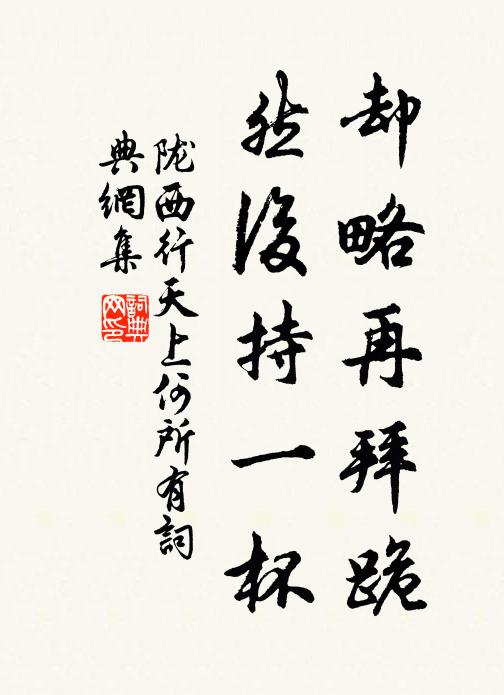 却略再拜跪
然後持一杯
陇西行天上何所有詞
典網集
詞典網印